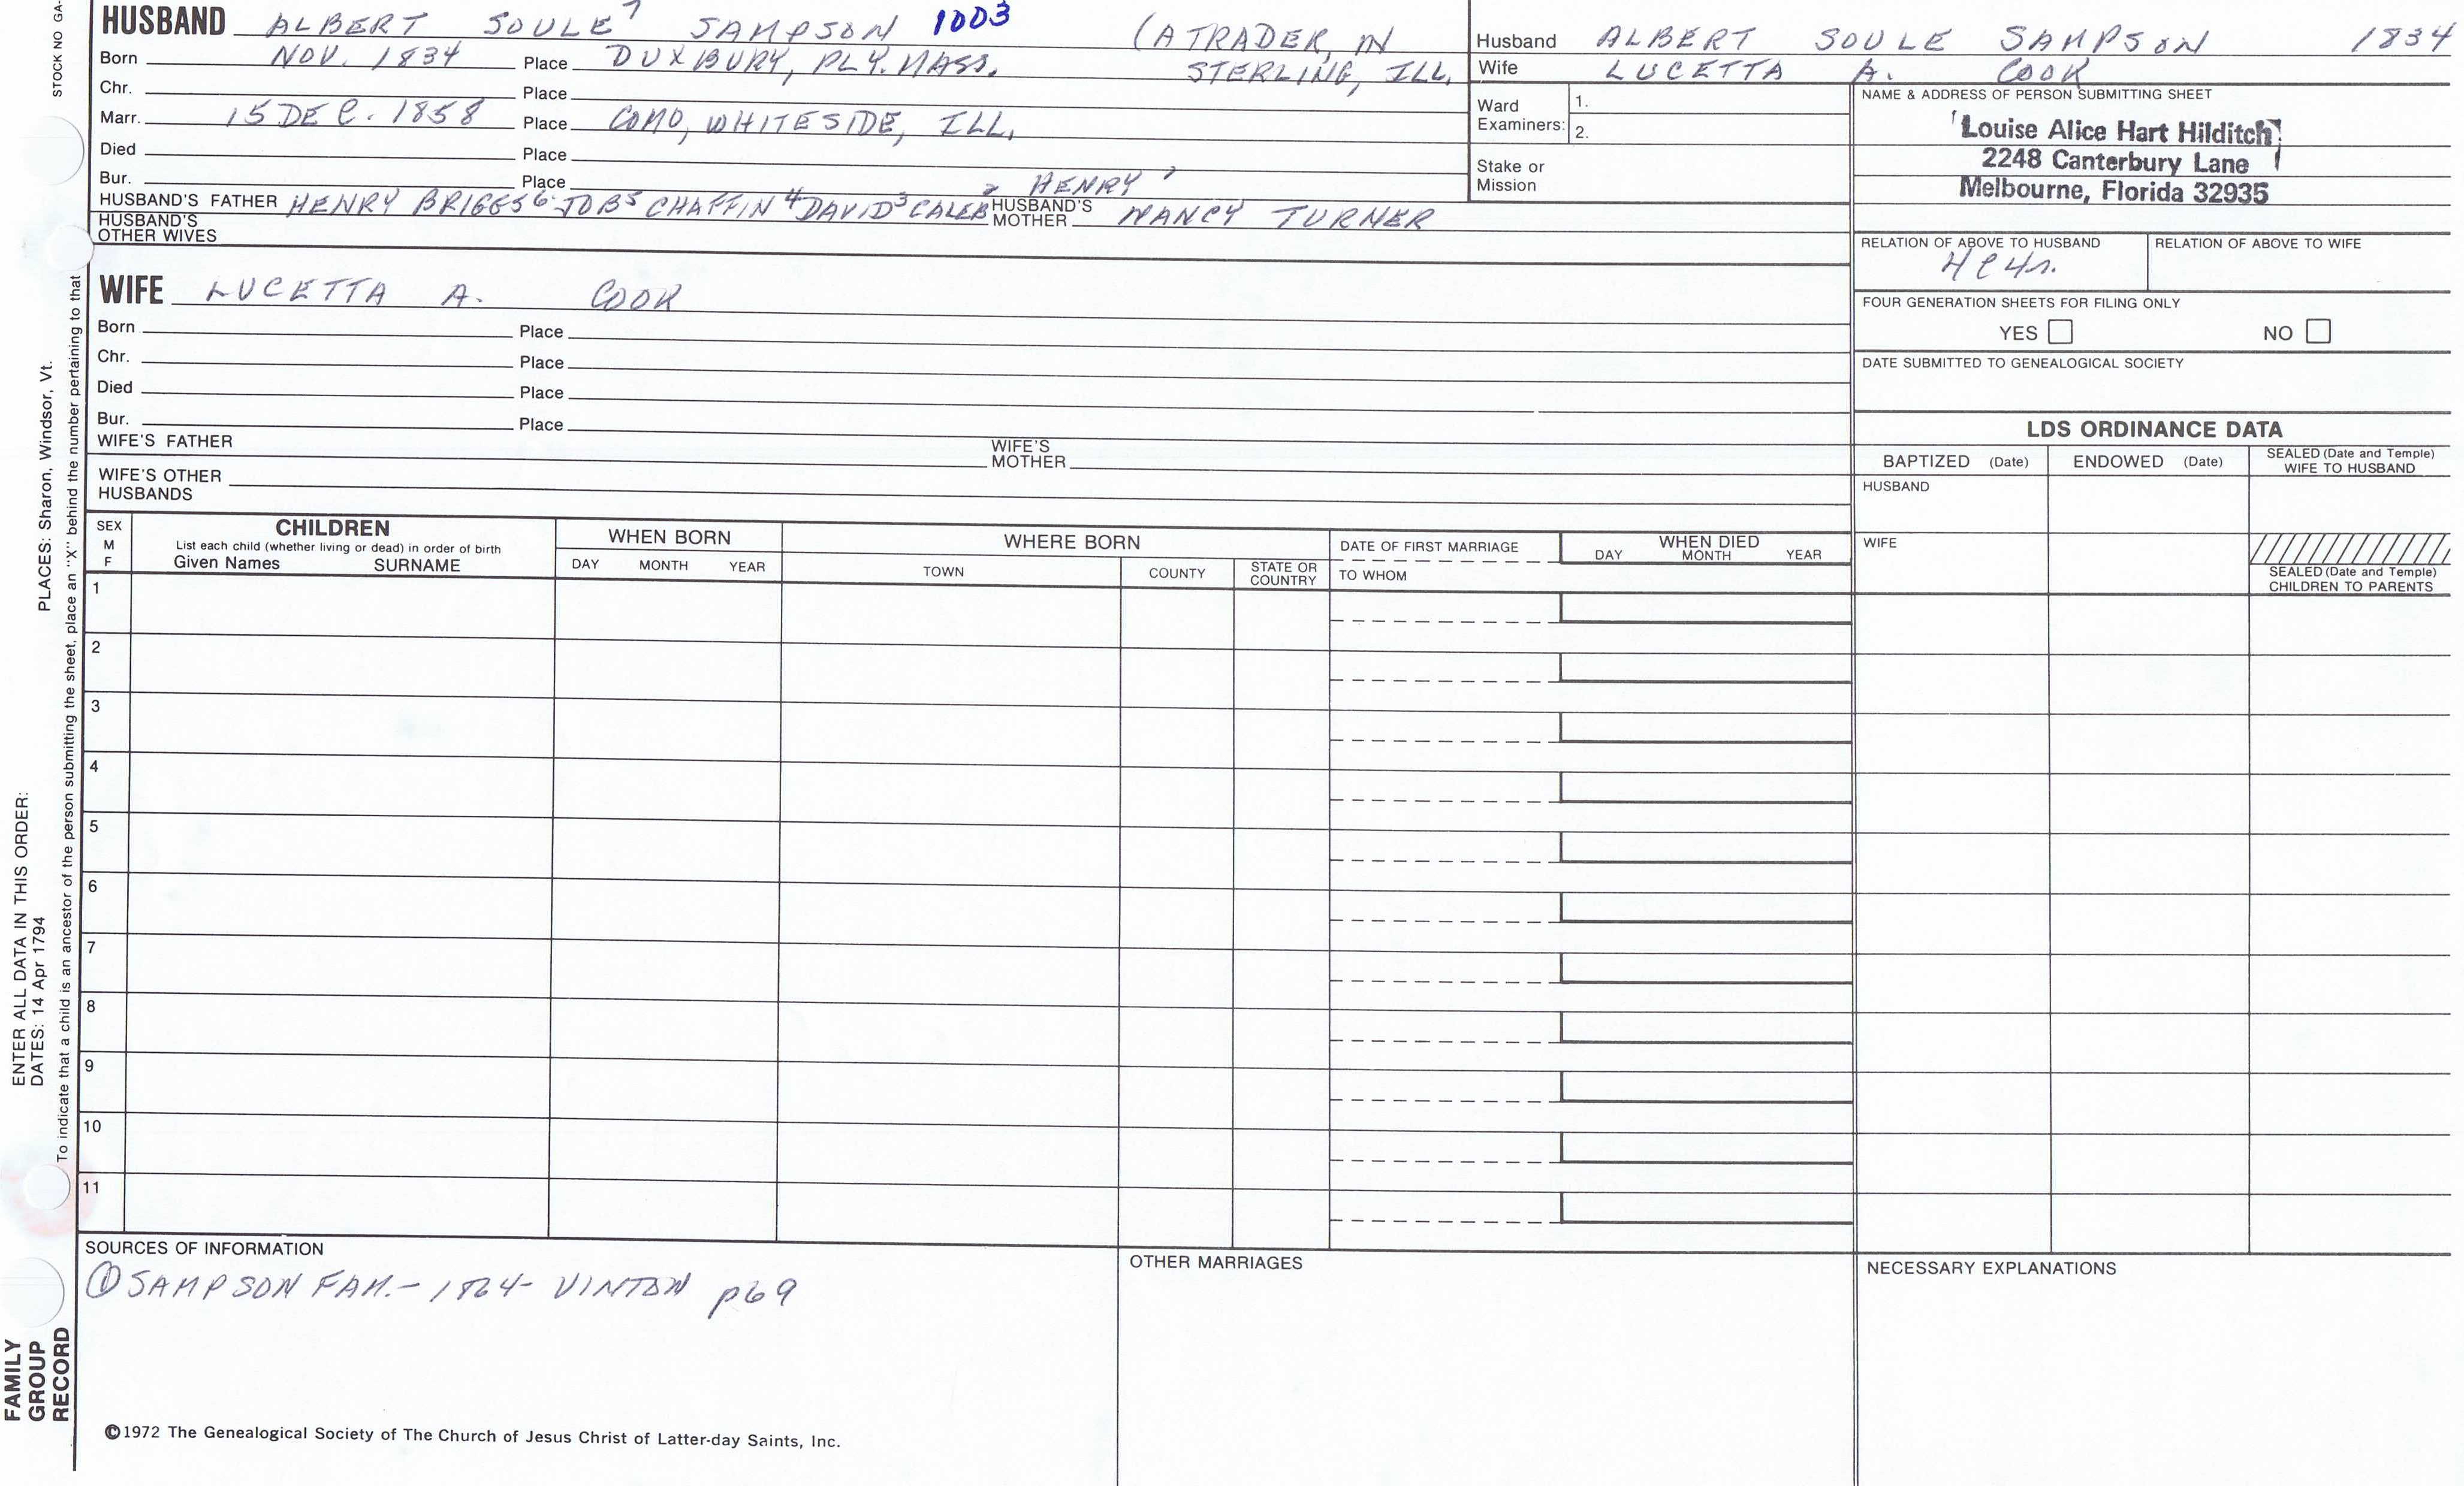 STOCK NO GA-
HUSBAND ALBERT SOULE⁷ SAMPSON 1003 (A TRADER, IN
Born NOV. 1834 Place DUXBURY, PLY. MASS. STERLING, ILL.
Chr. Place
Marr. 15 DEC. 1858 Place COMO, WHITESIDE, ILL.
Died Place
Bur. Place
HUSBAND'S FATHER HENRY BRIGGS⁶ JOB⁵ CHAFFIN⁴ DAVID³ CALEB² HENRY¹ HUSBAND'S MOTHER NANCY TURNER
HUSBAND'S OTHER WIVES
Husband ALBERT SOULE SAMPSON 1834
Wife LUCETTA A. COOK
Ward Examiners: 1.
2.
Stake or Mission
NAME & ADDRESS OF PERSON SUBMITTING SHEET
Louise Alice Hart Hilditch
2248 Canterbury Lane
Melbourne, Florida 32935
RELATION OF ABOVE TO HUSBAND RELATION OF ABOVE TO WIFE
FOUR GENERATION SHEETS FOR FILING ONLY
YES NO
DATE SUBMITTED TO GENEALOGICAL SOCIETY
WIFE LUCETTA A. COOK
Born Place
Chr. Place
Died Place
Bur. Place
WIFE'S FATHER WIFE'S MOTHER
WIFE'S OTHER HUSBANDS
LDS ORDINANCE DATA
BAPTIZED (Date) ENDOWED (Date) SEALED (Date and Temple) WIFE TO HUSBAND
HUSBAND
WIFE
SEALED (Date and Temple) CHILDREN TO PARENTS
SEX M F
CHILDREN
List each child (whether living or dead) in order of birth
Given Names SURNAME
WHEN BORN
DAY MONTH YEAR
WHERE BORN
TOWN COUNTY STATE OR COUNTRY
DATE OF FIRST MARRIAGE
TO WHOM
WHEN DIED
DAY MONTH YEAR
1
2
3
4
5
6
7
8
9
10
11
SOURCES OF INFORMATION
① SAMPSON FAM. - 1864 - VINTON p69
OTHER MARRIAGES
NECESSARY EXPLANATIONS
©1972 The Genealogical Society of The Church of Jesus Christ of Latter-day Saints, Inc.
FAMILY GROUP RECORD
ENTER ALL DATA IN THIS ORDER:
DATES: 14 Apr 1794
PLACES: Sharon, Windsor, Vt.
To indicate that a child is an ancestor of the person submitting the sheet, place an "X" behind the number pertaining to that